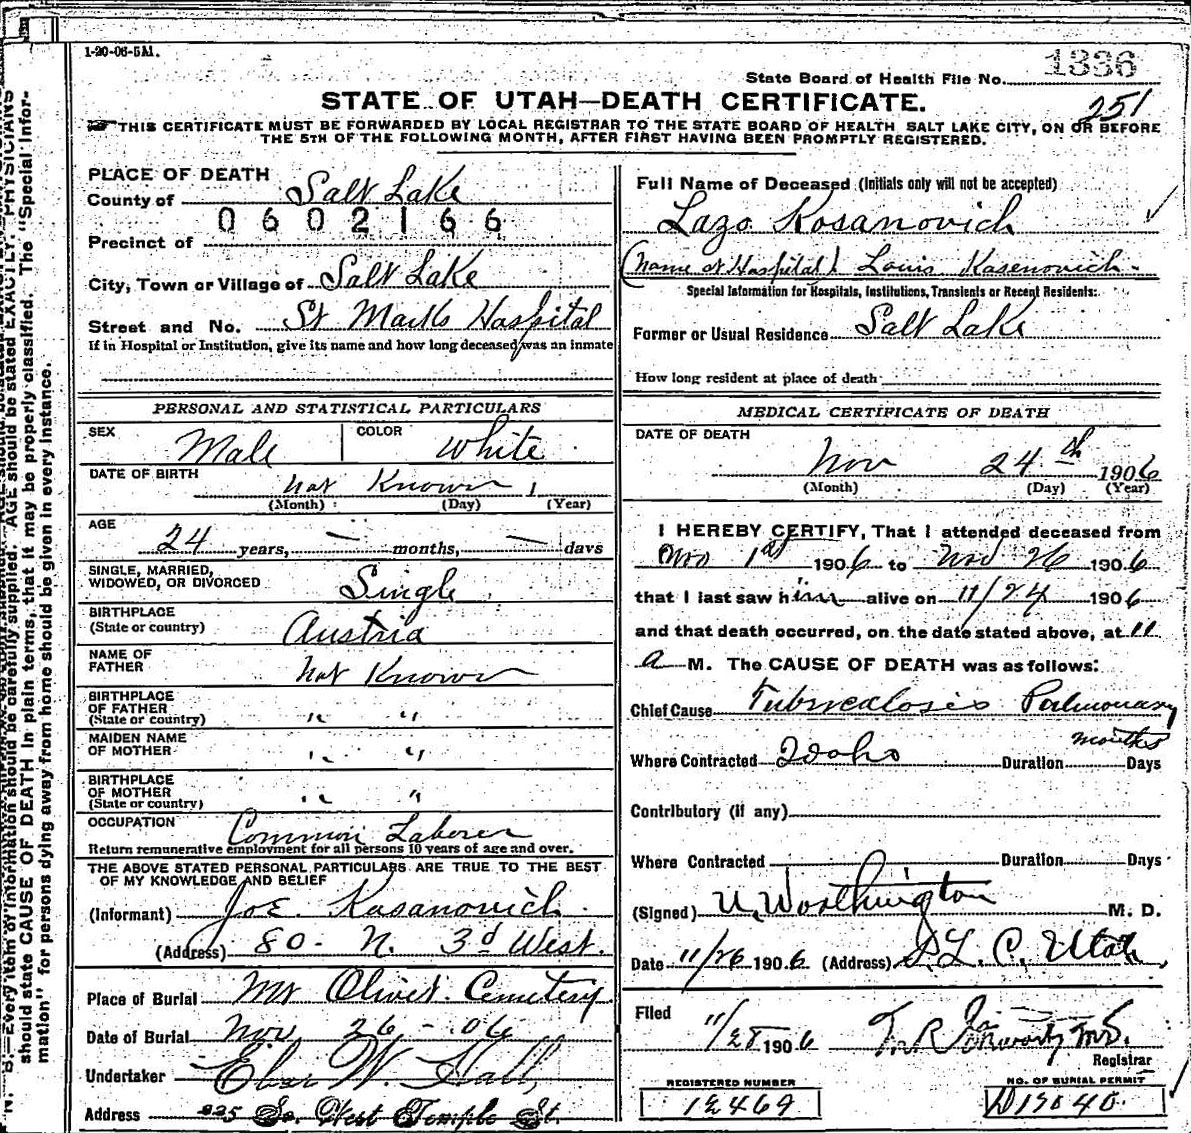 1-20-06-5M.
State Board of Health File No. 1336
251
STATE OF UTAH—DEATH CERTIFICATE.
THIS CERTIFICATE MUST BE FORWARDED BY LOCAL REGISTRAR TO THE STATE BOARD OF HEALTH SALT LAKE CITY, ON OR BEFORE
THE 5TH OF THE FOLLOWING MONTH, AFTER FIRST HAVING BEEN PROMPTLY REGISTERED.
PLACE OF DEATH
County of Salt Lake
0602166
Precinct of
City, Town or Village of Salt Lake
Street and No. St Marks Hospital
If in Hospital or Institution, give its name and how long deceased was an inmate
Full Name of Deceased (Initials only will not be accepted)
Lazo Kosanovich
(Name at Hospital) Louis Kasenovich
Special Information for Hospitals, Institutions, Transients or Recent Residents:
Former or Usual Residence Salt Lake
How long resident at place of death
PERSONAL AND STATISTICAL PARTICULARS
SEX Male COLOR White
DATE OF BIRTH Not Known 1
(Month) (Day) (Year)
AGE
24 years, — months, — days
SINGLE, MARRIED,
WIDOWED, OR DIVORCED Single
BIRTHPLACE
(State or country) Austria
NAME OF
FATHER Not Known
BIRTHPLACE
OF FATHER
(State or country) " "
MAIDEN NAME
OF MOTHER " "
BIRTHPLACE
OF MOTHER
(State or country) " "
OCCUPATION Common Laborer
Return remunerative employment for all persons 10 years of age and over.
THE ABOVE STATED PERSONAL PARTICULARS ARE TRUE TO THE BEST
OF MY KNOWLEDGE AND BELIEF
(Informant) Joe Kasanovich
(Address) 80 - N. 3d West.
Place of Burial Mt Olivet Cemetery
Date of Burial Nov 26 - 06
Undertaker Eber W. Hall
Address 235 So. West Temple St.
MEDICAL CERTIFICATE OF DEATH
DATE OF DEATH
Nov 24th 1906
(Month) (Day) (Year)
I HEREBY CERTIFY, That I attended deceased from
Nov 1st 1906 to Nov 26 1906
that I last saw him alive on 11/24 1906
and that death occurred, on the date stated above, at 11
a M. The CAUSE OF DEATH was as follows:
Chief Cause Tuberculosis Pulmonary
Where Contracted Idaho Duration months Days
Contributory (if any)
Where Contracted Duration Days
(Signed) U. Worthington M. D.
Date 11/26 1906 (Address) S. L. C. Utah
Filed
11/28 1906
Registrar
REGISTERED NUMBER
12469
NO. OF BURIAL PERMIT
should state CAUSE OF DEATH in plain terms, that it may be properly classified. The "Special Infor-
mation" for persons dying away from home should be given in every instance.